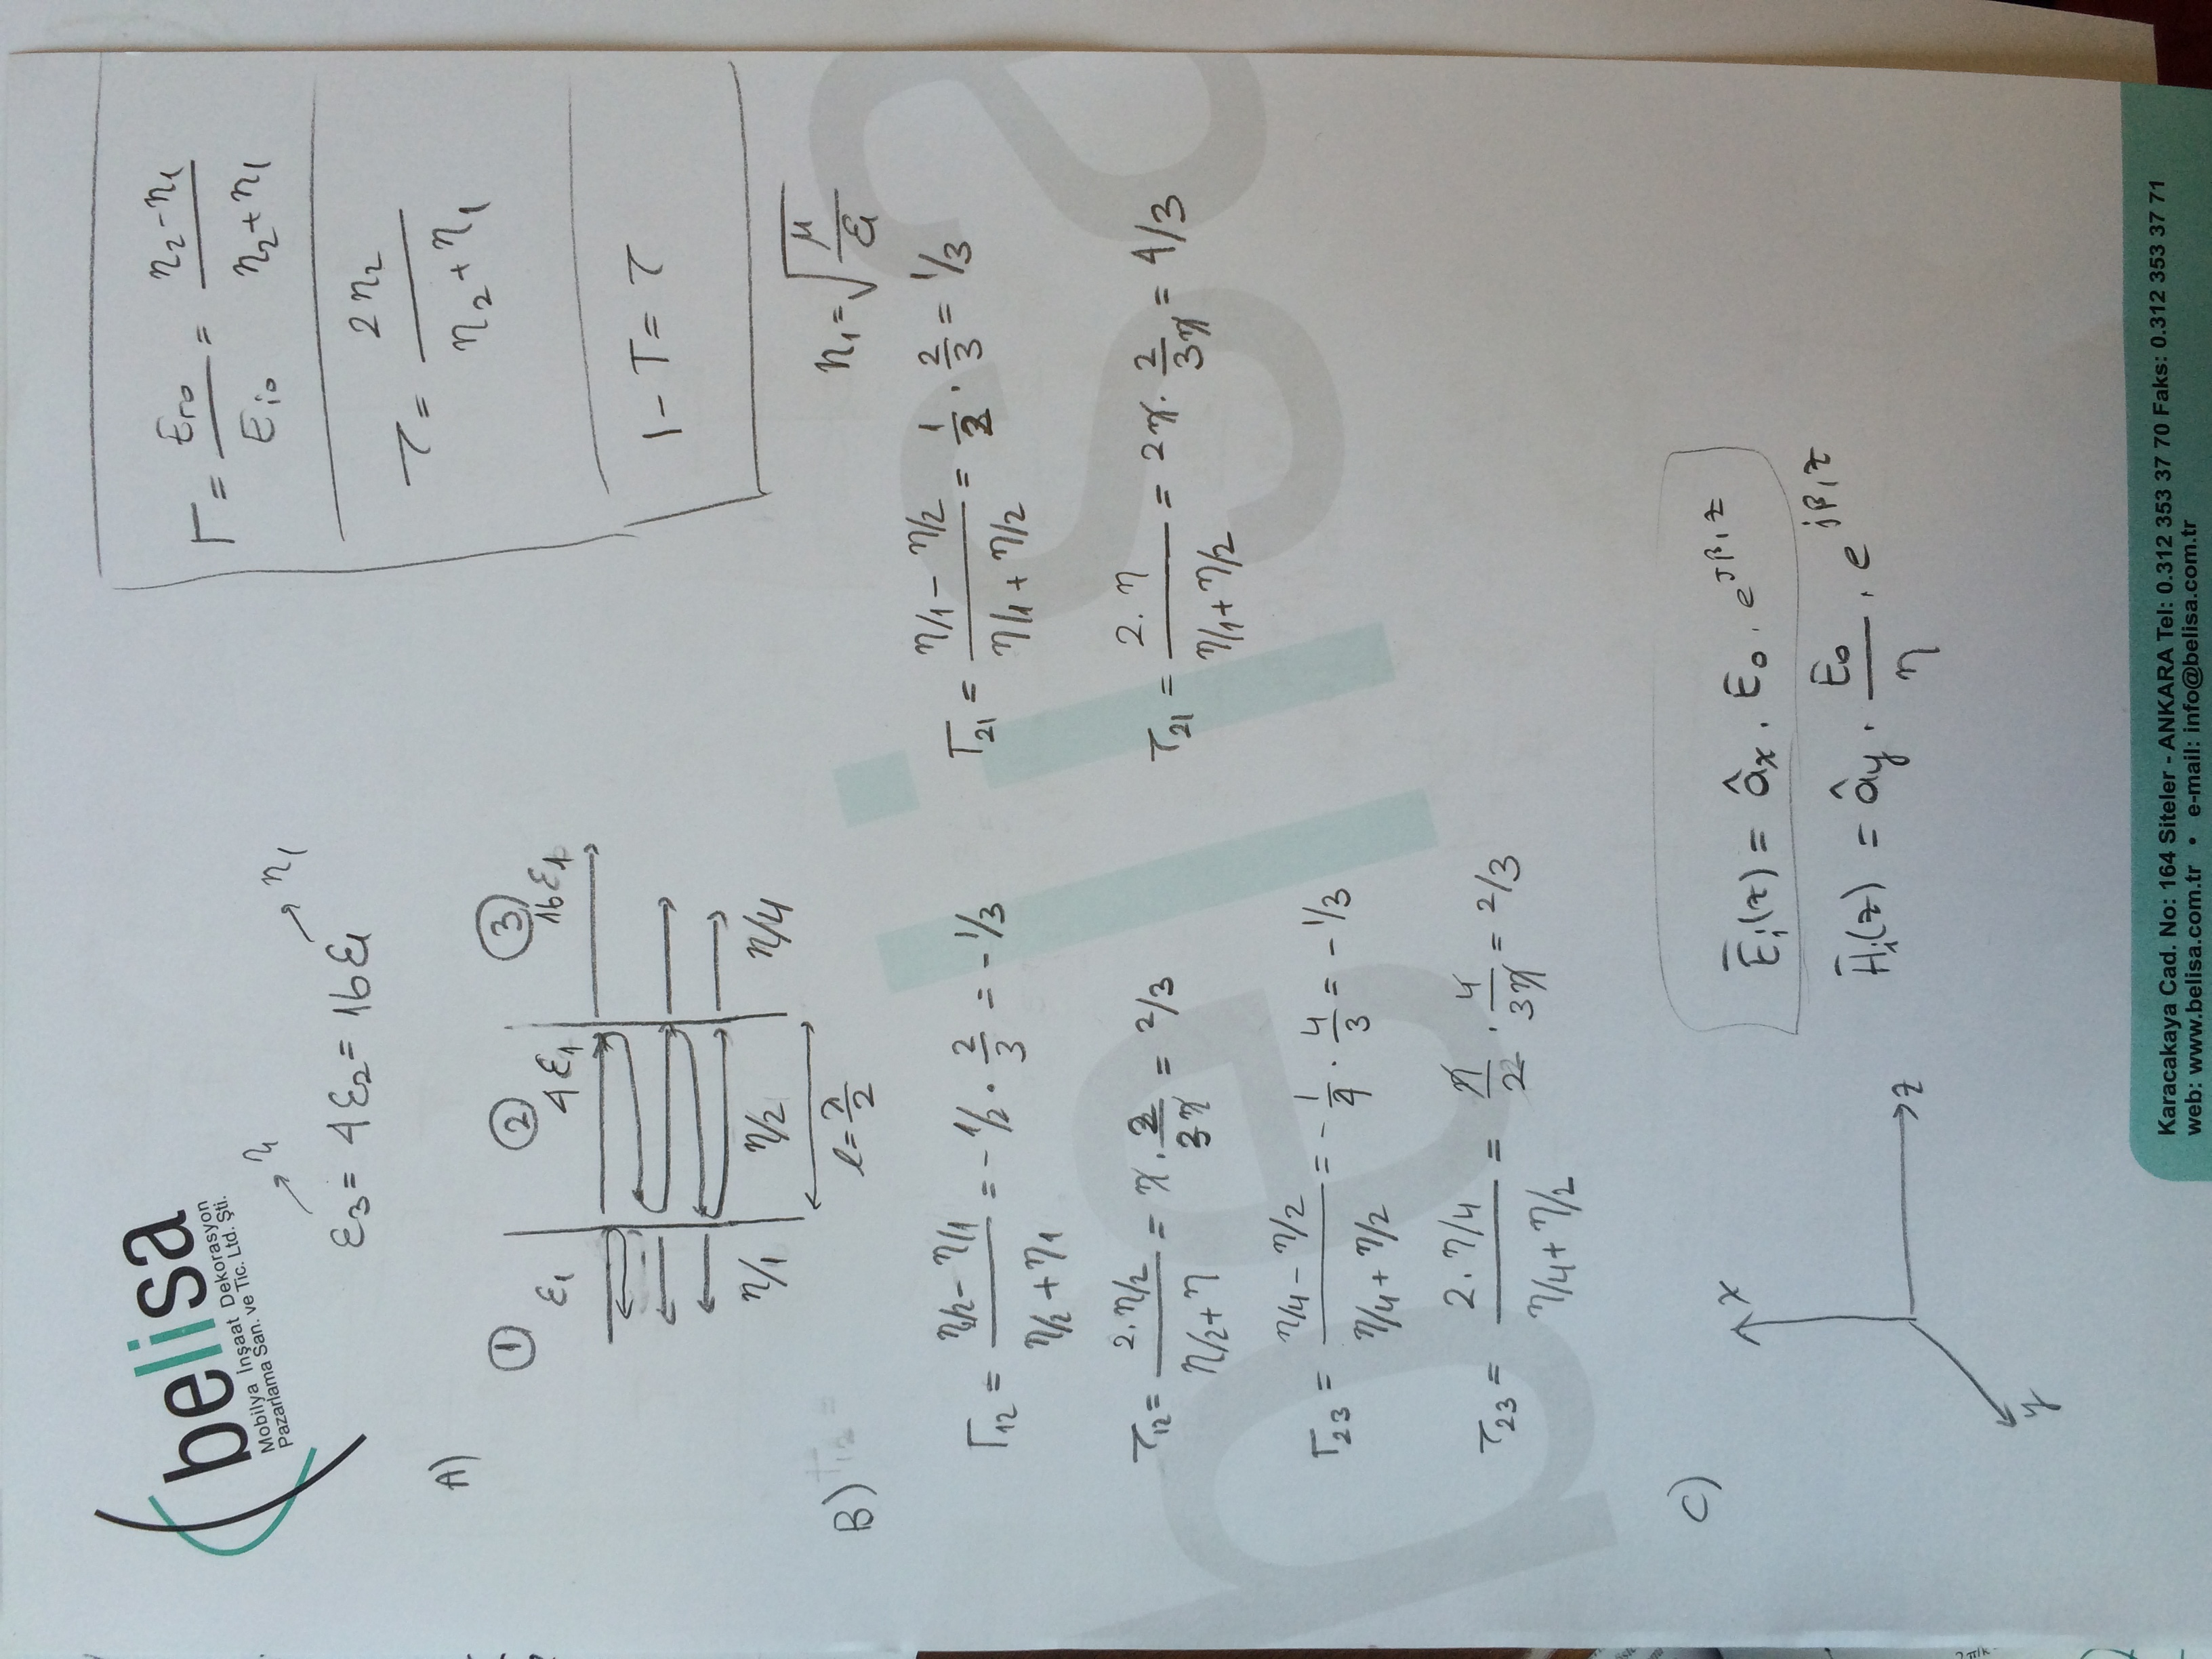 belisa
Mobilya İnşaat Dekorasyon
Pazarlama San. ve Tic. Ltd. Şti.
Γ = Ero / Eio = η2 - η1 / η2 + η1
η1
ε3 = 4 ε2 = 16 ε1
τ = 2 η2 / η2 + η1
1 - Γ = τ
A)
1 2 3
ε1 4 ε1 16 ε1
η/1 η/2 η/4
l = λ/2
η1 = √(μ/ε1)
B)
Γ12 = η/2 - η/1 / η/2 + η1 = - 1/2 . 2/3 = - 1/3
Γ21 = η/1 - η/2 / η/1 + η/2 = 1/2 . 2/3 = 1/3
τ12 = 2. η/2 / η/2 + η = η . 2/3η = 2/3
τ21 = 2. η / η/1 + η/2 = 2η . 2/3η = 4/3
Γ23 = η/4 - η/2 / η/4 + η/2 = - 1/4 . 4/3 = - 1/3
τ23 = 2. η/4 / η/4 + η/2 = η/2 . 4/3η = 2/3
C)
x
z
y
Ēi(z) = âx . E0 . e^jβ1z
H̄i(z) = ây . E0/η . e^jβ1z
belisa
Karacakaya Cad. No: 164 Siteler - ANKARA Tel: 0.312 353 37 70 Faks: 0.312 353 37 71
web: www.belisa.com.tr • e-mail: info@belisa.com.tr